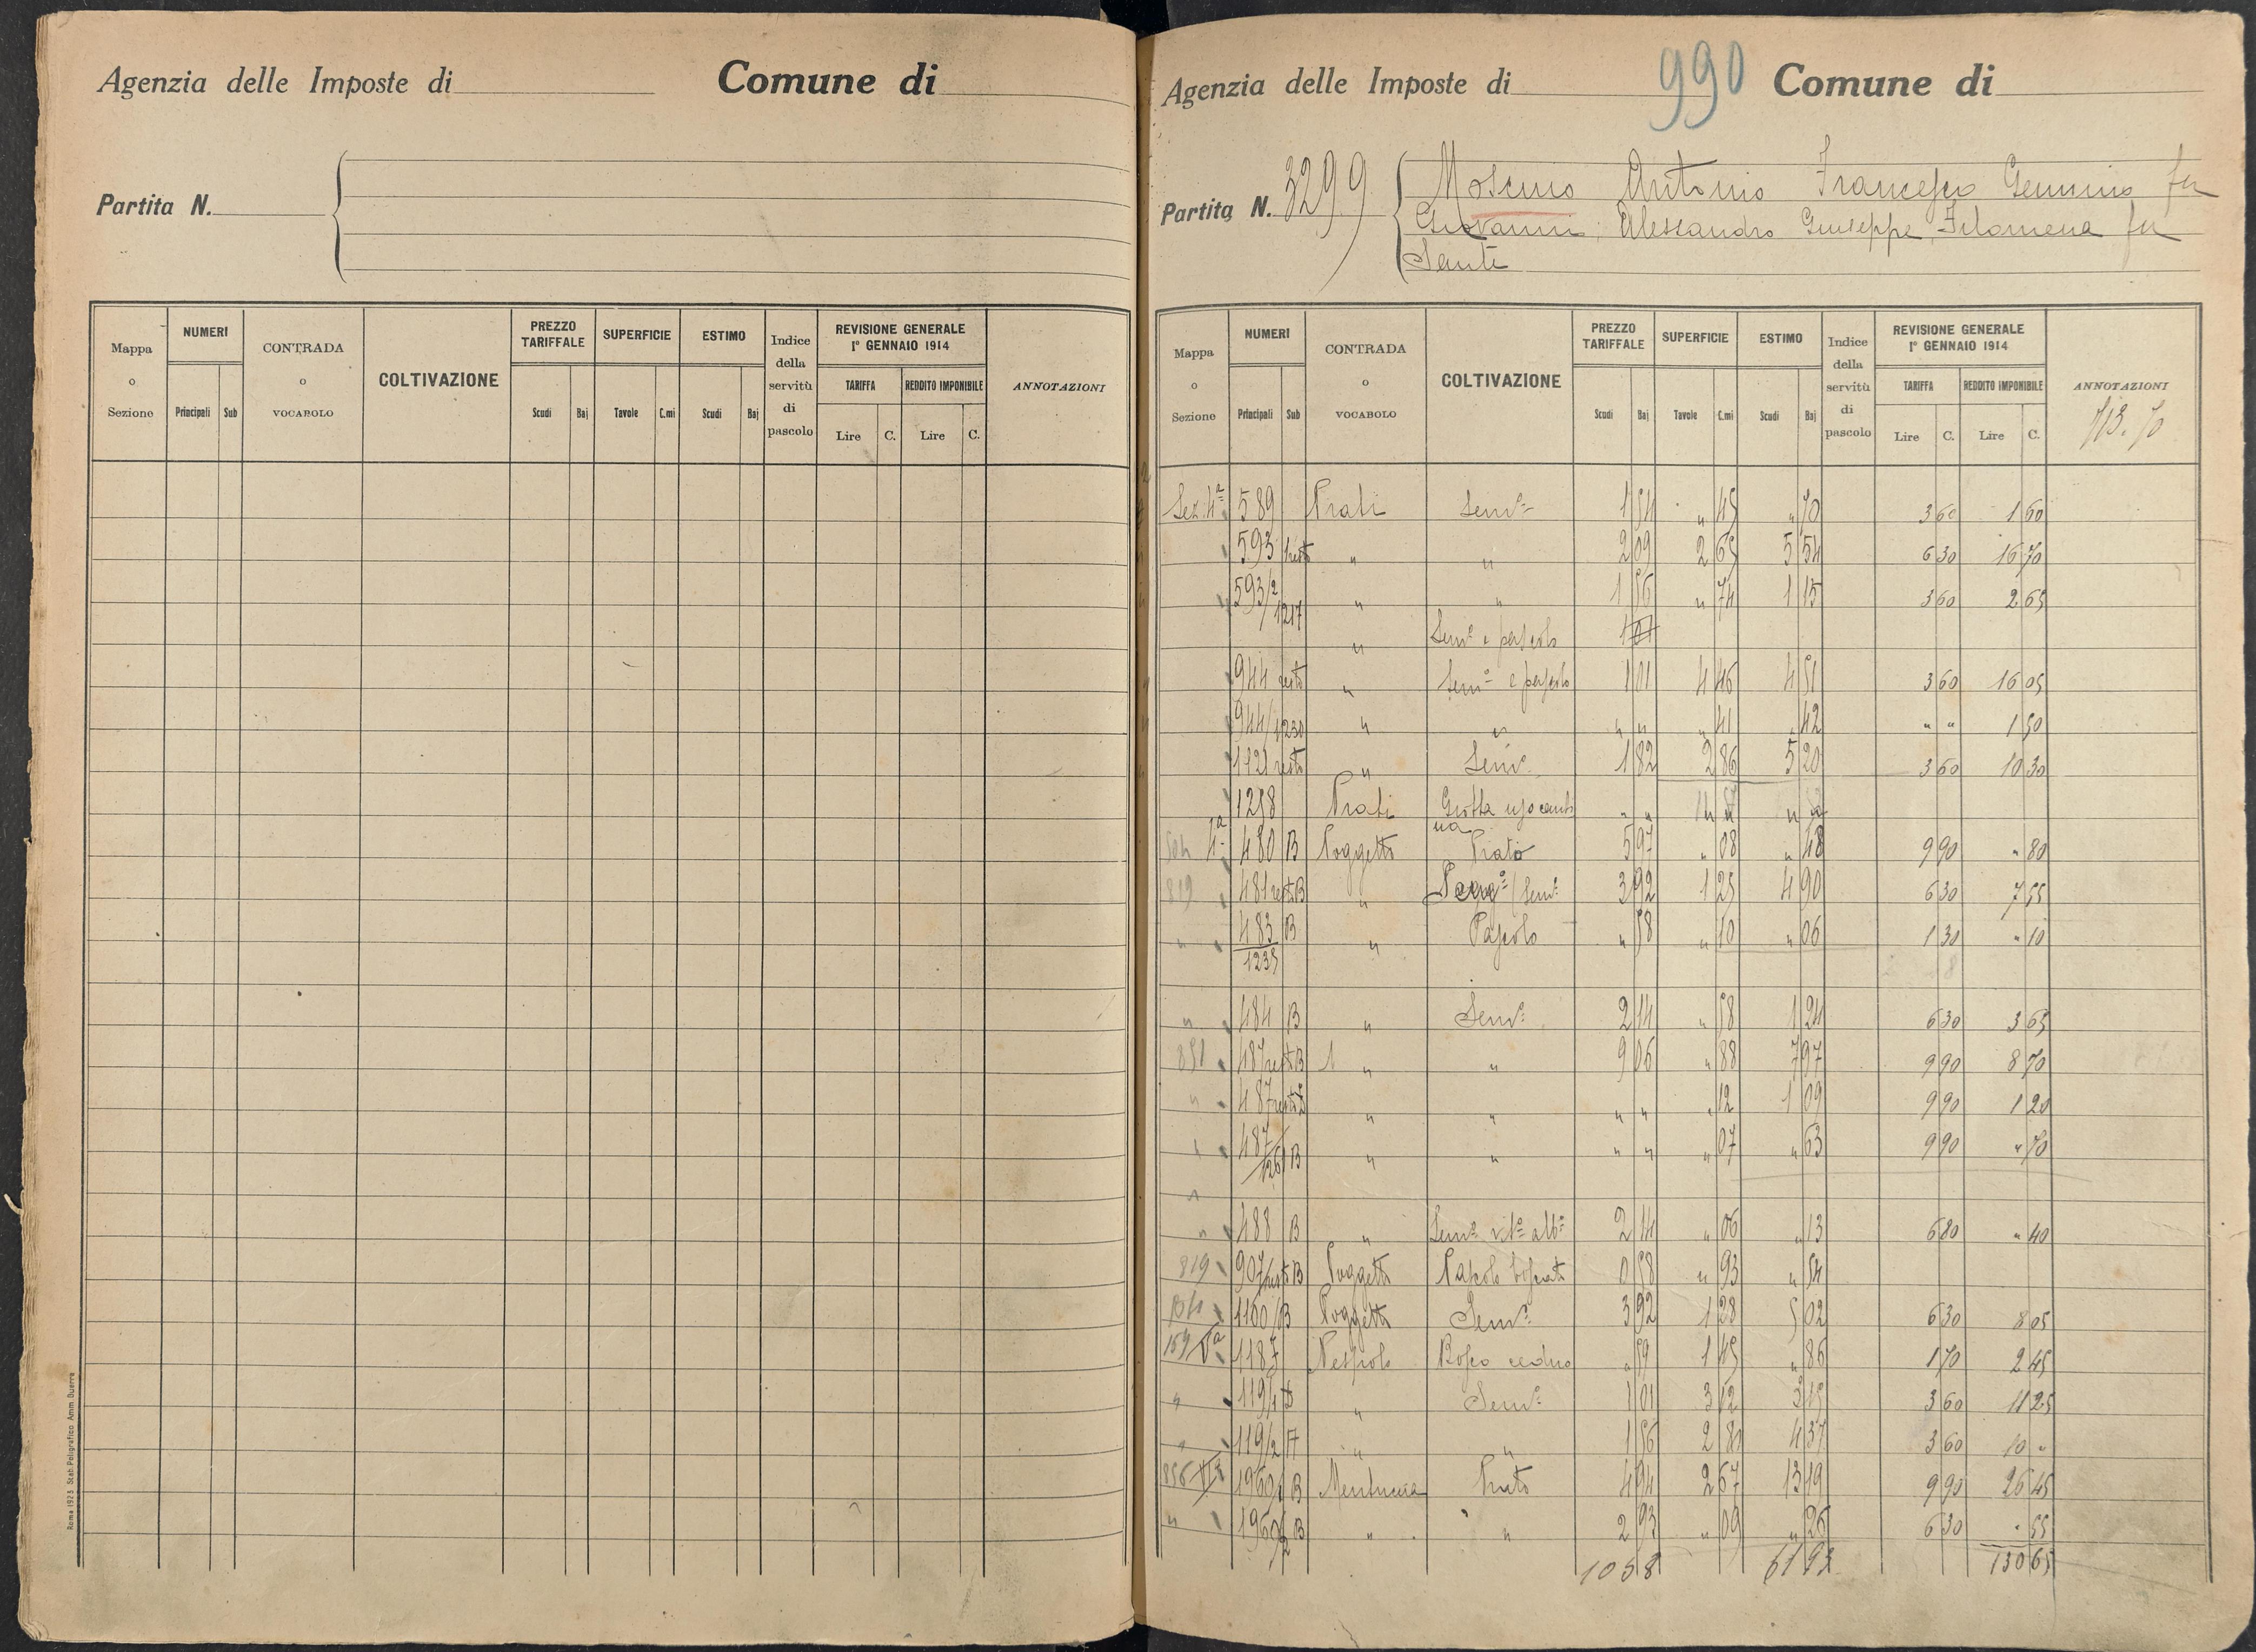 Agenzia delle Imposte di Comune di
Partita N.
Mappa o Sezione NUMERI Principali Sub CONTRADA o VOCABOLO COLTIVAZIONE PREZZO TARIFFALE Scudi Baj SUPERFICIE Tavole C.mi ESTIMO Scudi Baj Indice della servitù di pascolo REVISIONE GENERALE 1° GENNAIO 1914 TARIFFA Lire C. REDDITO IMPONIBILE Lire C. ANNOTAZIONI
Roma 1923 Stab. Poligrafico Amm. Guerra
990
Agenzia delle Imposte di Comune di
Partita N. 3299
Antonio Francesco Gemmino fu
Giovanni, Alessandro Giuseppe, Filomena fu
Santi
Mappa o Sezione NUMERI Principali Sub CONTRADA o VOCABOLO COLTIVAZIONE PREZZO TARIFFALE Scudi Baj SUPERFICIE Tavole C.mi ESTIMO Scudi Baj Indice della servitù di pascolo REVISIONE GENERALE 1° GENNAIO 1914 TARIFFA Lire C. REDDITO IMPONIBILE Lire C. ANNOTAZIONI
713.70
Sez. 4ª 589 Prati Semº 1 54 " 45 " 70 3 60 1 60
593 1 resto " " 2 09 2 65 5 54 6 30 16 70
593/2 1217 " " 1 56 " 74 1 15 3 60 2 65
" Semº e pascolo 1 01
944 resto " Semº e pascolo 1 01 4 46 4 51 3 60 16 05
944/1230 " " " " " 41 " 42 " " 1 50
1121 resto " Semº 1 82 2 86 5 20 3 60 10 30
1258 Prati Grotta uso canti
na
4ª 480 B Poggetto Prato 5 97 " 08 " 48 9 90 " 80
819 481 resto B " Semº 3 92 1 25 4 90 6 30 7 55
" 483 B " Pascolo " 58 " 10 " 06 1 30 " 10
1235
" 484 B " Semº 2 14 " 58 1 24 6 30 3 65
851 487 resto B 1 " " 9 06 " 88 7 97 9 90 8 70
" 487 resto 2 " " " " " 12 1 09 9 90 1 20
" 487/1261 B " " " " " 07 " 63 9 90 " 70
" 488 B " Semº vitº albº 2 14 " 06 " 13 6 80 " 40
819 907 resto B Poggetto Pascolo boscato 0 58 " 93 " 54
1160 B Poggetto Semº 3 92 1 28 5 02 6 30 8 05
159 Vª 1187 Nespolo Bosco ceduo " 59 1 45 " 86 1 70 2 45
" 119/1 " Semº 1 01 3 12 3 15 3 60 11 25
" 119/2 A " " 1 56 2 81 4 37 3 60 10 "
856 1960/1 B Mentuccia Prato 4 94 2 67 13 19 9 90 26 45
" 1960/2 B " " 2 93 " 09 " 26 6 30 " 55
61 93 130 65